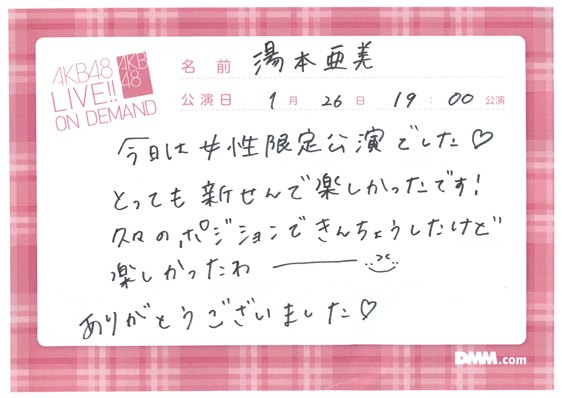 AKB48
LIVE!!
ON DEMAND
AKB
48
名前 湯本亜美
公演日 1月26日 19:00公演
今日は女性限定公演でした♡
とっても新せんで楽しかったです!
久々のポジションできんちょうしたけど
楽しかったわ———
ありがとうございました♡
DMM.com